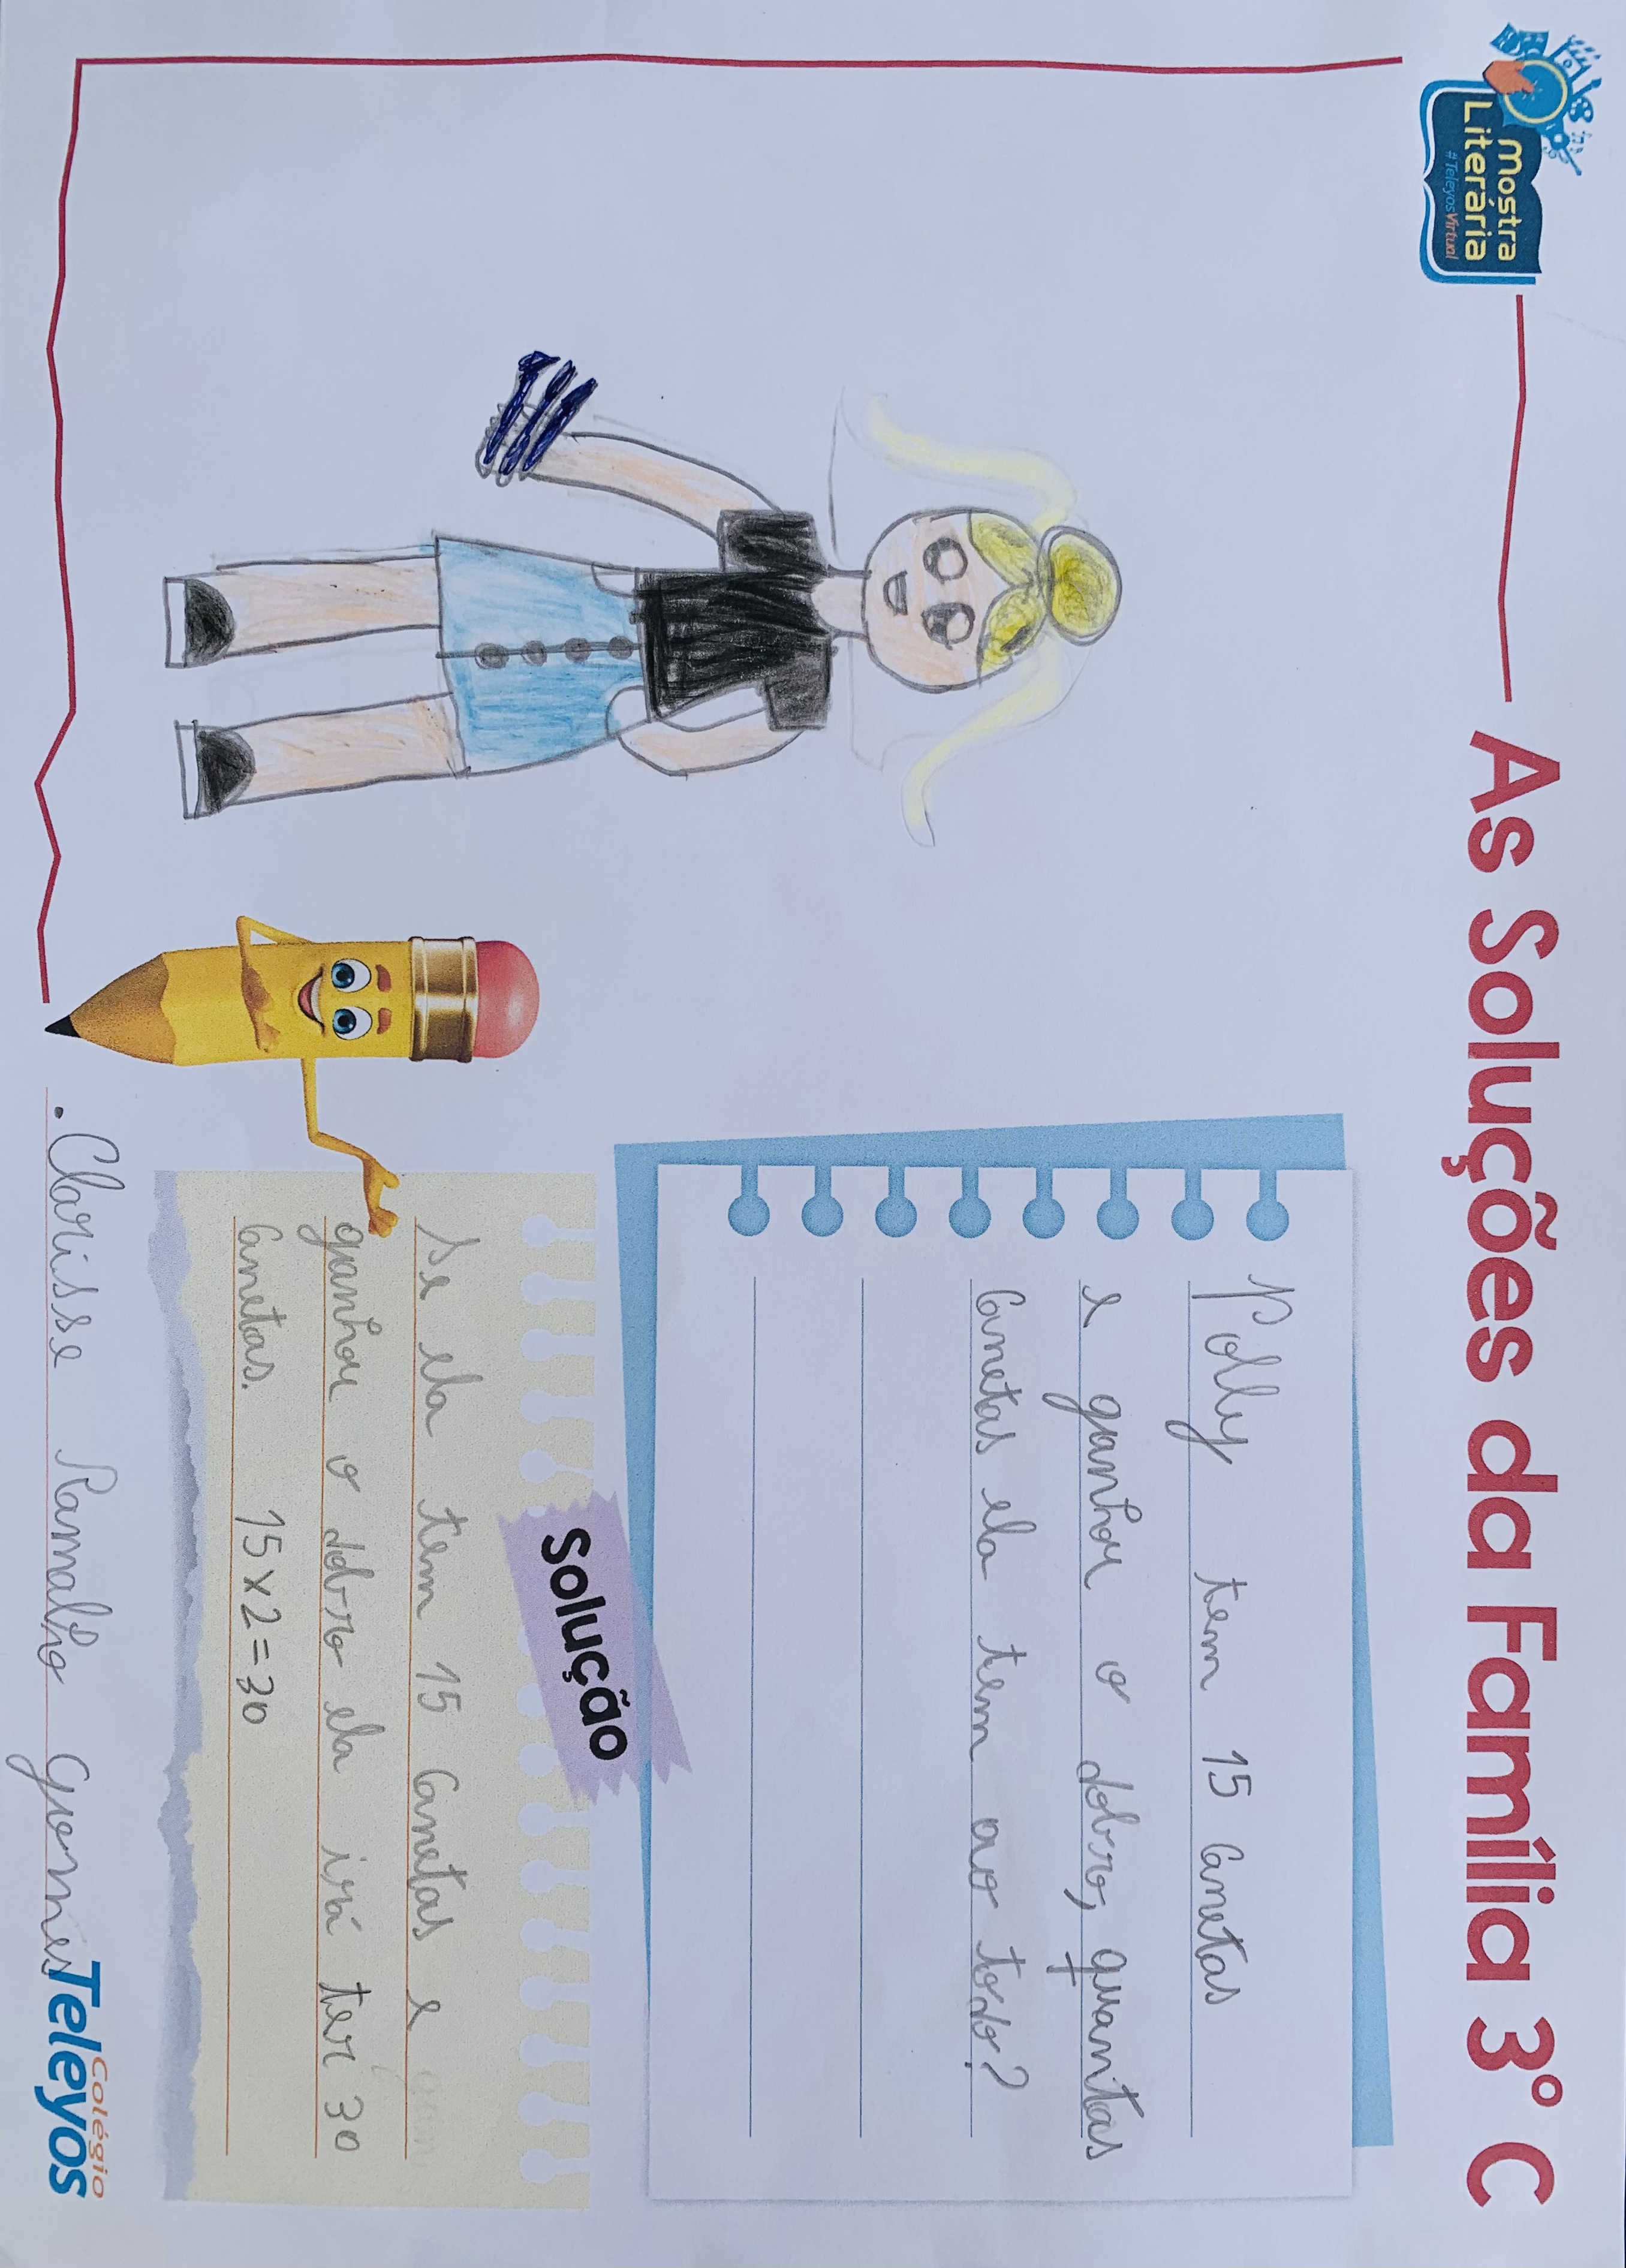 Mostra
Literária
#TeleyosVirtual
As Soluções da Família 3º C
Polly tem 15 canetas
e ganhou o dobro, quantas
canetas ela tem ao todo?
Solução
Se ela tem 15 canetas e
ganhou o dobro ela irá ter 30
canetas. 15x2=30
.Clarisse Ramalho Gromies
Colégio
Teleyos